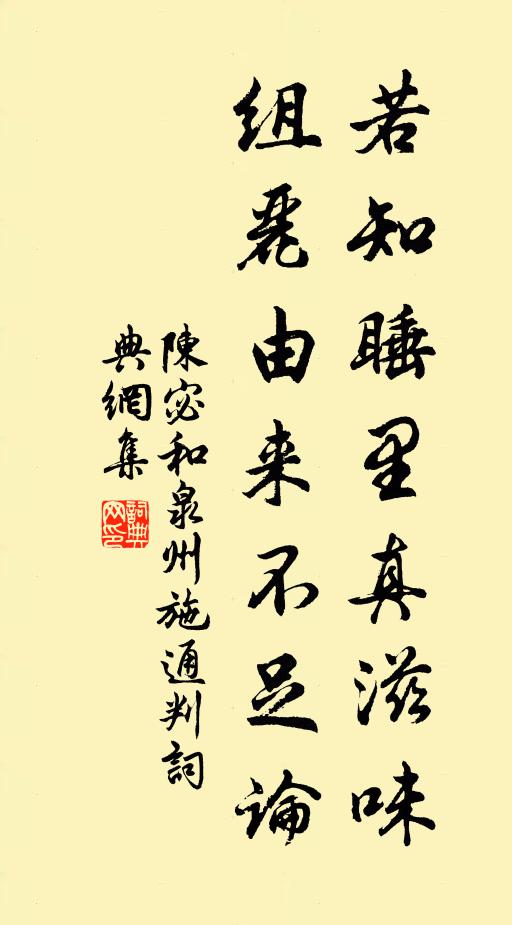 若知睡里真滋味
组丽由来不足論
陳宓和泉州施通判詞
典網集
詞典网印